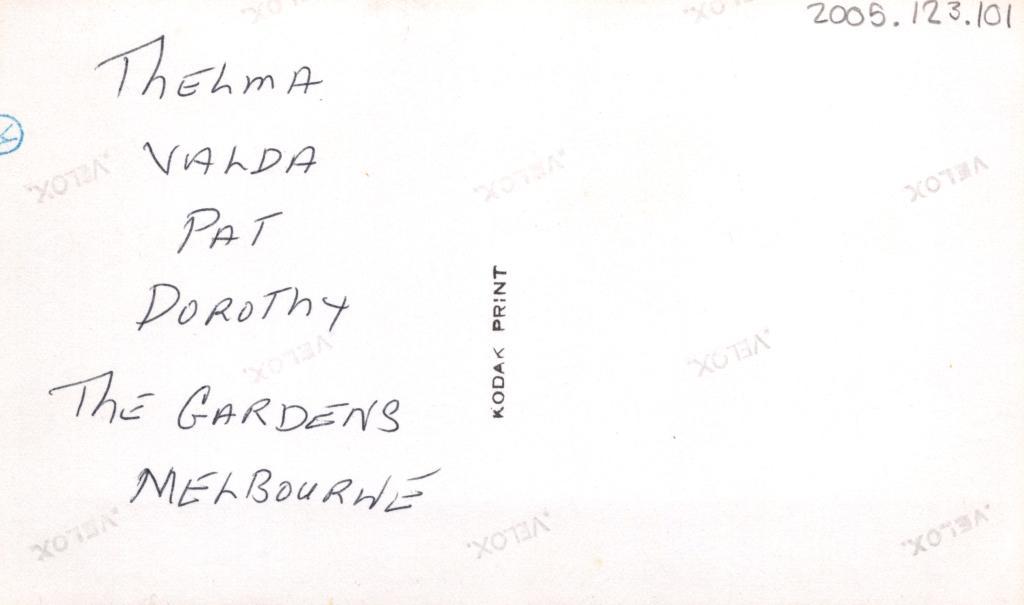 2005.123.101
Thelma
VALDA
PAT
DOROTHY
The GARDENS
MELBOURNE
KODAK PRINT
VELOX
VELOX
VELOX
VELOX
VELOX
VELOX
VELOX
VELOX